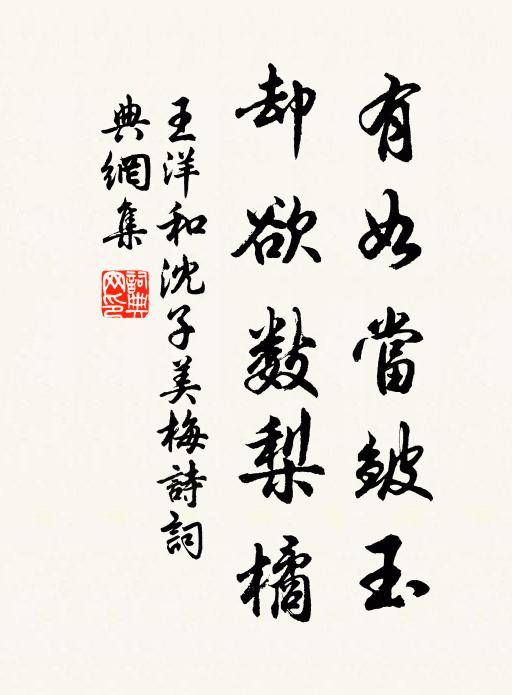 有如當鈹玉
却欲數梨橘
王洋和沈子美梅詩詞
典網集
詞典網印